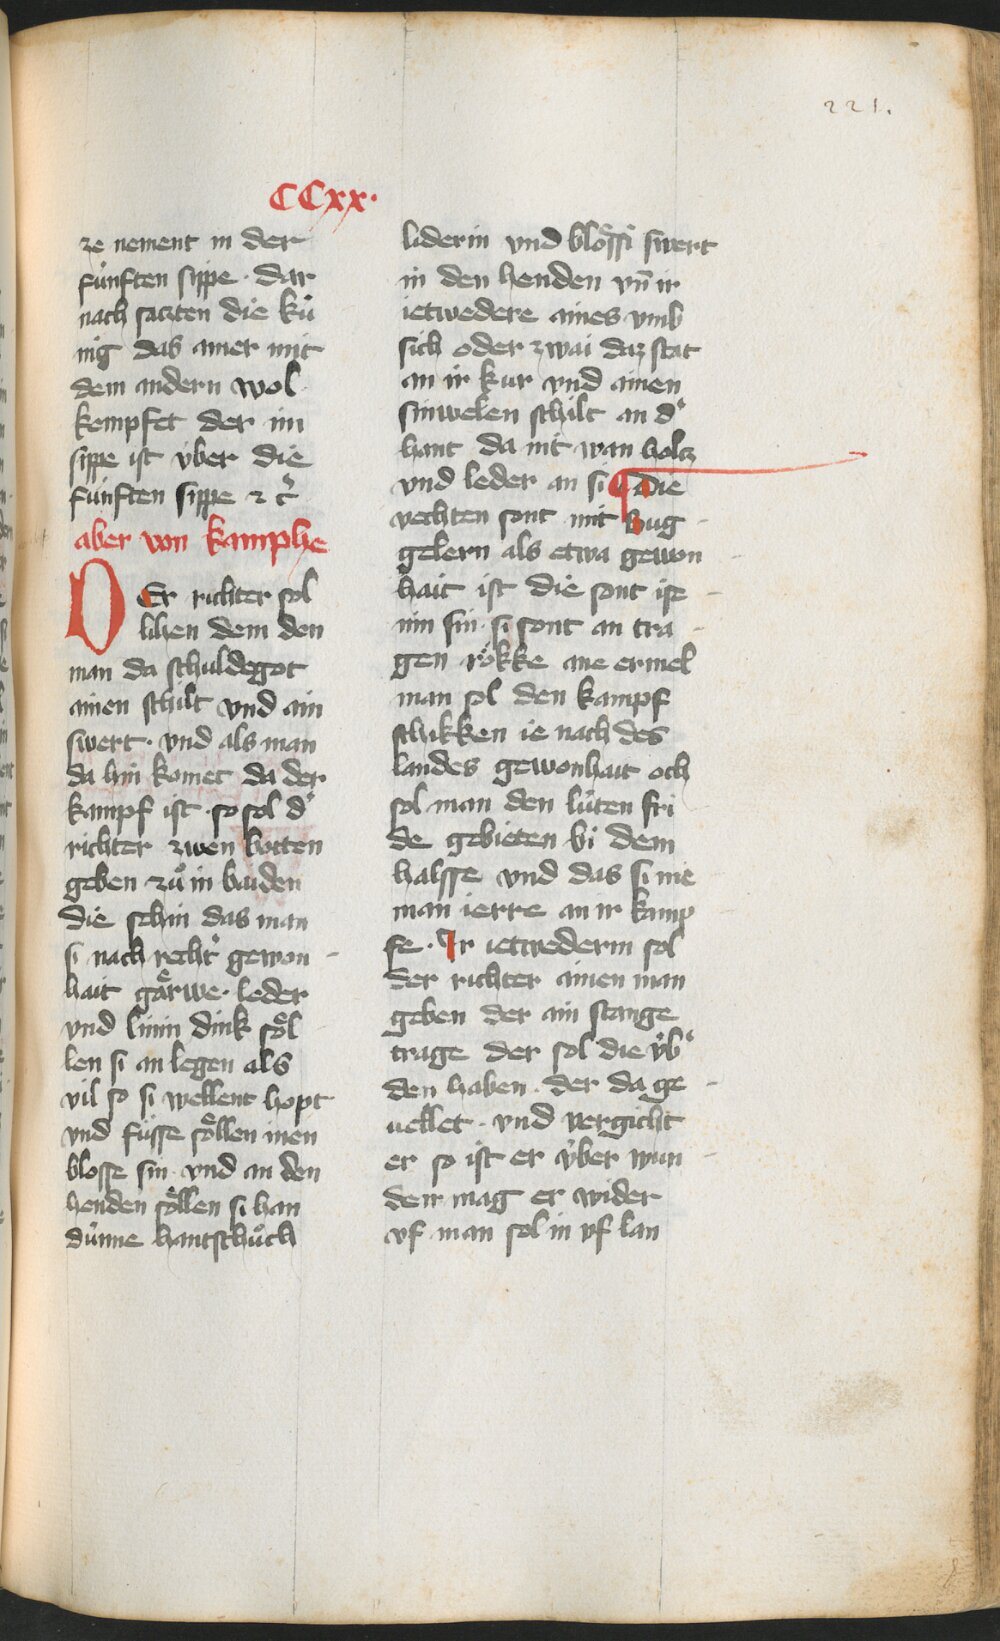 221.
CCxx.
ze nement in der
fúnften sippe · dar
nach saczten die kú
nig das ainer mit
dem andern wol
kempfet der im
sippe ist vber die
fúnften sippe ⁊ c̄
aber von kamphe
DEr richter sol
lihen dem den
man da schuldegot
ainen schilt vnd ain
swert · vnd als man
da hin komet da der
kampf ist · so sol d'
richter zwen botten
geben zuͦ in baiden
die sehin das man
si nach recht' gewon
hait gaͤrwe · leder
vnd linin dink soͤl
len si an legen als
vil so si wellent hopt
vnd fuͤsse soͤllen inen
blosse sin · vnd an den
henden soͤllen si han
dúnne hantschuͦch
liderin vnd bloͤssi swert
in den henden vn̄ ir
ietwedere aines vmb
sich oder zwai daz stat
an ir kur vnd ainen
sinwelen schilt an d'
hant da nit wan holcz
vnd leder an si die
vechten sont mit bug
gelern als etwa gewon
hait ist die sont ise
nin sin · si sont an tra
gen roͤkke ane ermel
man sol den kampf
schikken ie nach des
landes gewonhait och
sol man den lúten fri
de gebieten bi dem
halsse vnd das si nie
man ierre an ir kamp
fe · Ir ietwederm sol
der richter ainen man
geben der ain stange
trage der sol die vb'
den haben · der da ge
uellet · vnd vergicht
er so ist er vber wun
den mag er wider
vf · man sol in vf lan